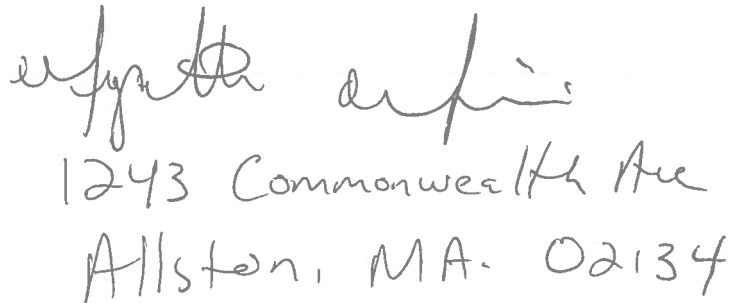 1243 Commonwealth Ave
Allston, MA. 02134